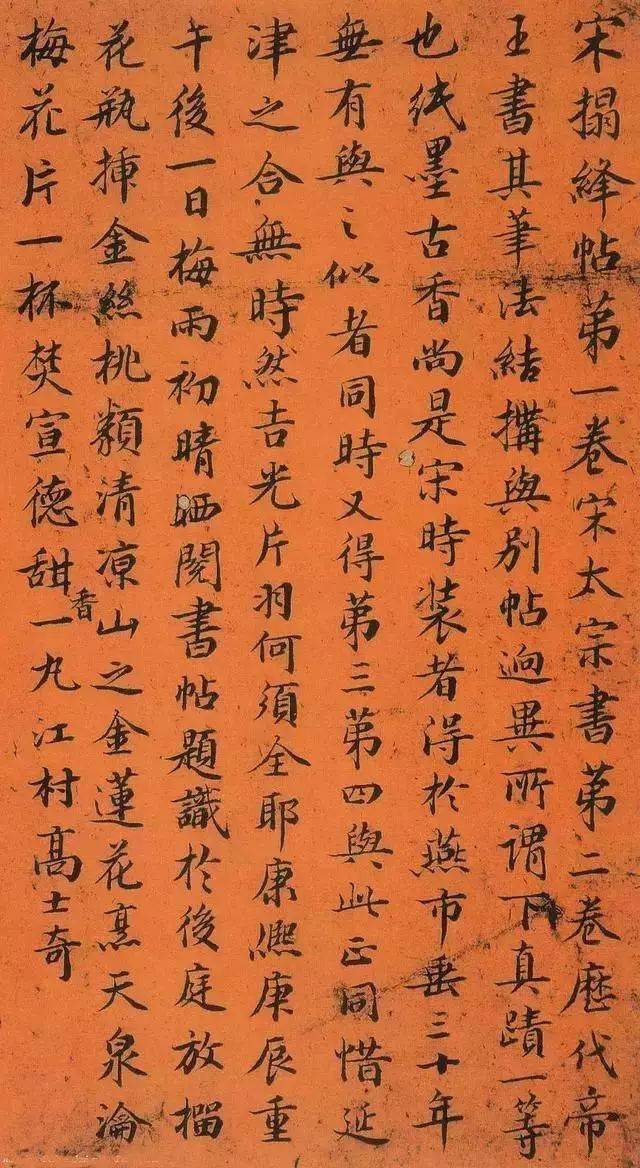 宋搨絳帖第一卷宋太宗書第二卷歷代帝
王書其筆法結搆與別帖逈異所謂下真蹟一等
也紙墨古香尚是宋時装者得於燕市垂三十年
無有與之似者同時又得第三第四與此正同惜延
津之合無時然吉光片羽何須全耶康熈庚辰重
午後一日梅雨初晴晒閱書帖題識於後庭放榴
花瓶揷金絲桃類清凉山之金蓮花烹天泉瀹
梅花片一杯焚宣德甜香一丸江村高士奇